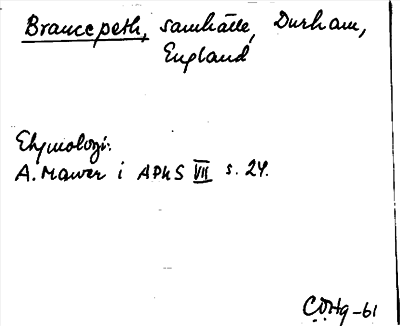 Brancepeth, samhälle, Durham,
England
Etymologi:
A. Mawer i APhS VII s. 24.
COHg-61